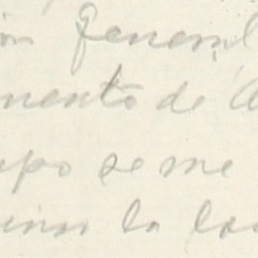 ón general
mento de
po se me
inar la